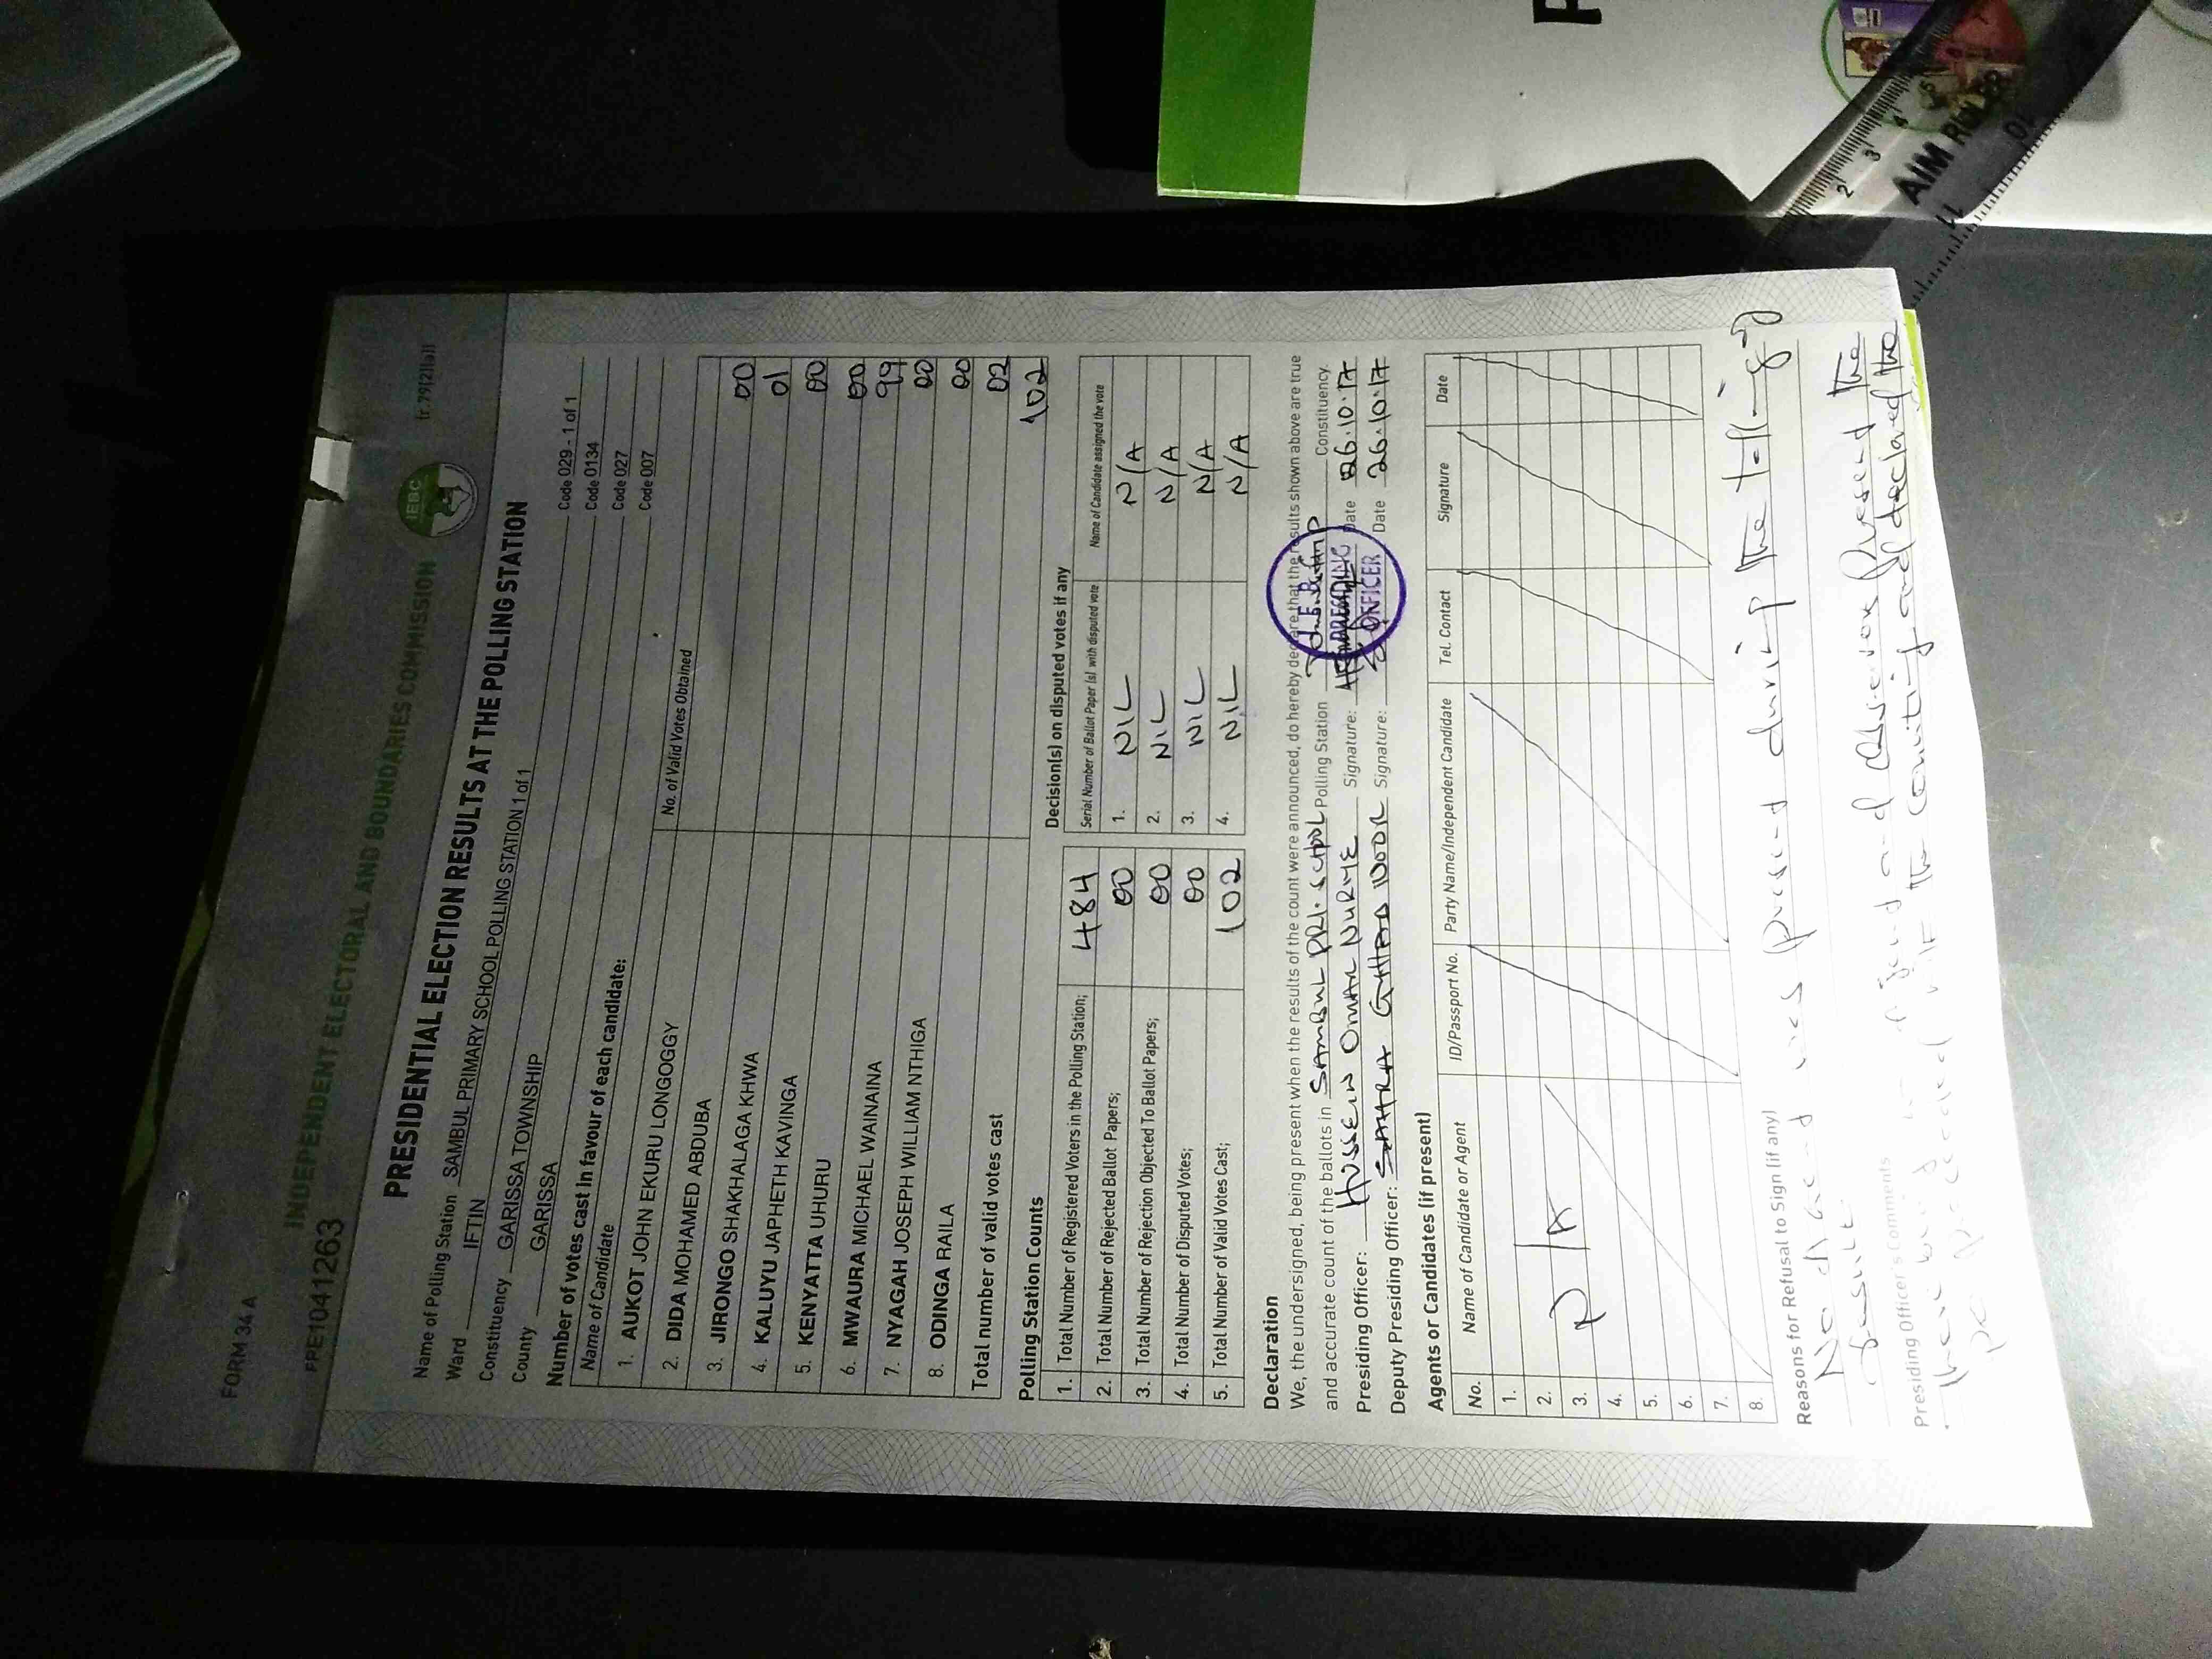 FORM 34 A
(r.79(2)(a))
FPE1041263
INDEPENDENT ELECTORAL AND BOUNDARIES COMMISSION
IEBC
PRESIDENTIAL ELECTION RESULTS AT THE POLLING STATION
Name of Polling Station SAMBUL PRIMARY SCHOOL POLLING STATION 1 of 1 Code 029 - 1 of 1
Ward IFTIN Code 0134
Constituency GARISSA TOWNSHIP Code 027
County GARISSA Code 007
Number of votes cast in favour of each candidate:
Name of Candidate No. of Valid Votes Obtained
1. AUKOT JOHN EKURU LONGOGGY 00
2. DIDA MOHAMED ABDUBA 01
3. JIRONGO SHAKHALAGA KHWA 00
4. KALUYU JAPHETH KAVINGA 00
5. KENYATTA UHURU 99
6. MWAURA MICHAEL WAINAINA 00
7. NYAGAH JOSEPH WILLIAM NTHIGA 00
8. ODINGA RAILA 02
Total number of valid votes cast 102
Polling Station Counts
1. Total Number of Registered Voters in the Polling Station; 484
2. Total Number of Rejected Ballot Papers; 00
3. Total Number of Rejection Objected To Ballot Papers; 00
4. Total Number of Disputed Votes; 00
5. Total Number of Valid Votes Cast; 102
Decision(s) on disputed votes if any
Serial Number of Ballot Paper (s) with disputed vote Name of Candidate assigned the vote
1. NIL N/A
2. NIL N/A
3. NIL N/A
4. NIL N/A
Declaration
We, the undersigned, being present when the results of the count were announced, do hereby declare that the results shown above are true
and accurate count of the ballots in SAMBUL PRI. SCHOOL Polling Station Constituency.
Presiding Officer: HUSSEIN OMAR NURYE Signature: Date 26.10.17
Deputy Presiding Officer: Signature: Date 26.10.17
PRESIDING
OFFICER
Agents or Candidates (if present)
No. Name of Candidate or Agent ID/Passport No. Party Name/Independent Candidate Tel. Contact Signature Date
1.
2.
3.
4.
5.
6.
7.
8.
Reasons for Refusal to Sign (if any)
No agent was present during the tallying of
results
Presiding Officer's Comments
and observers present the
the counting and declared the
AIM RULER
2 3 4
11 10